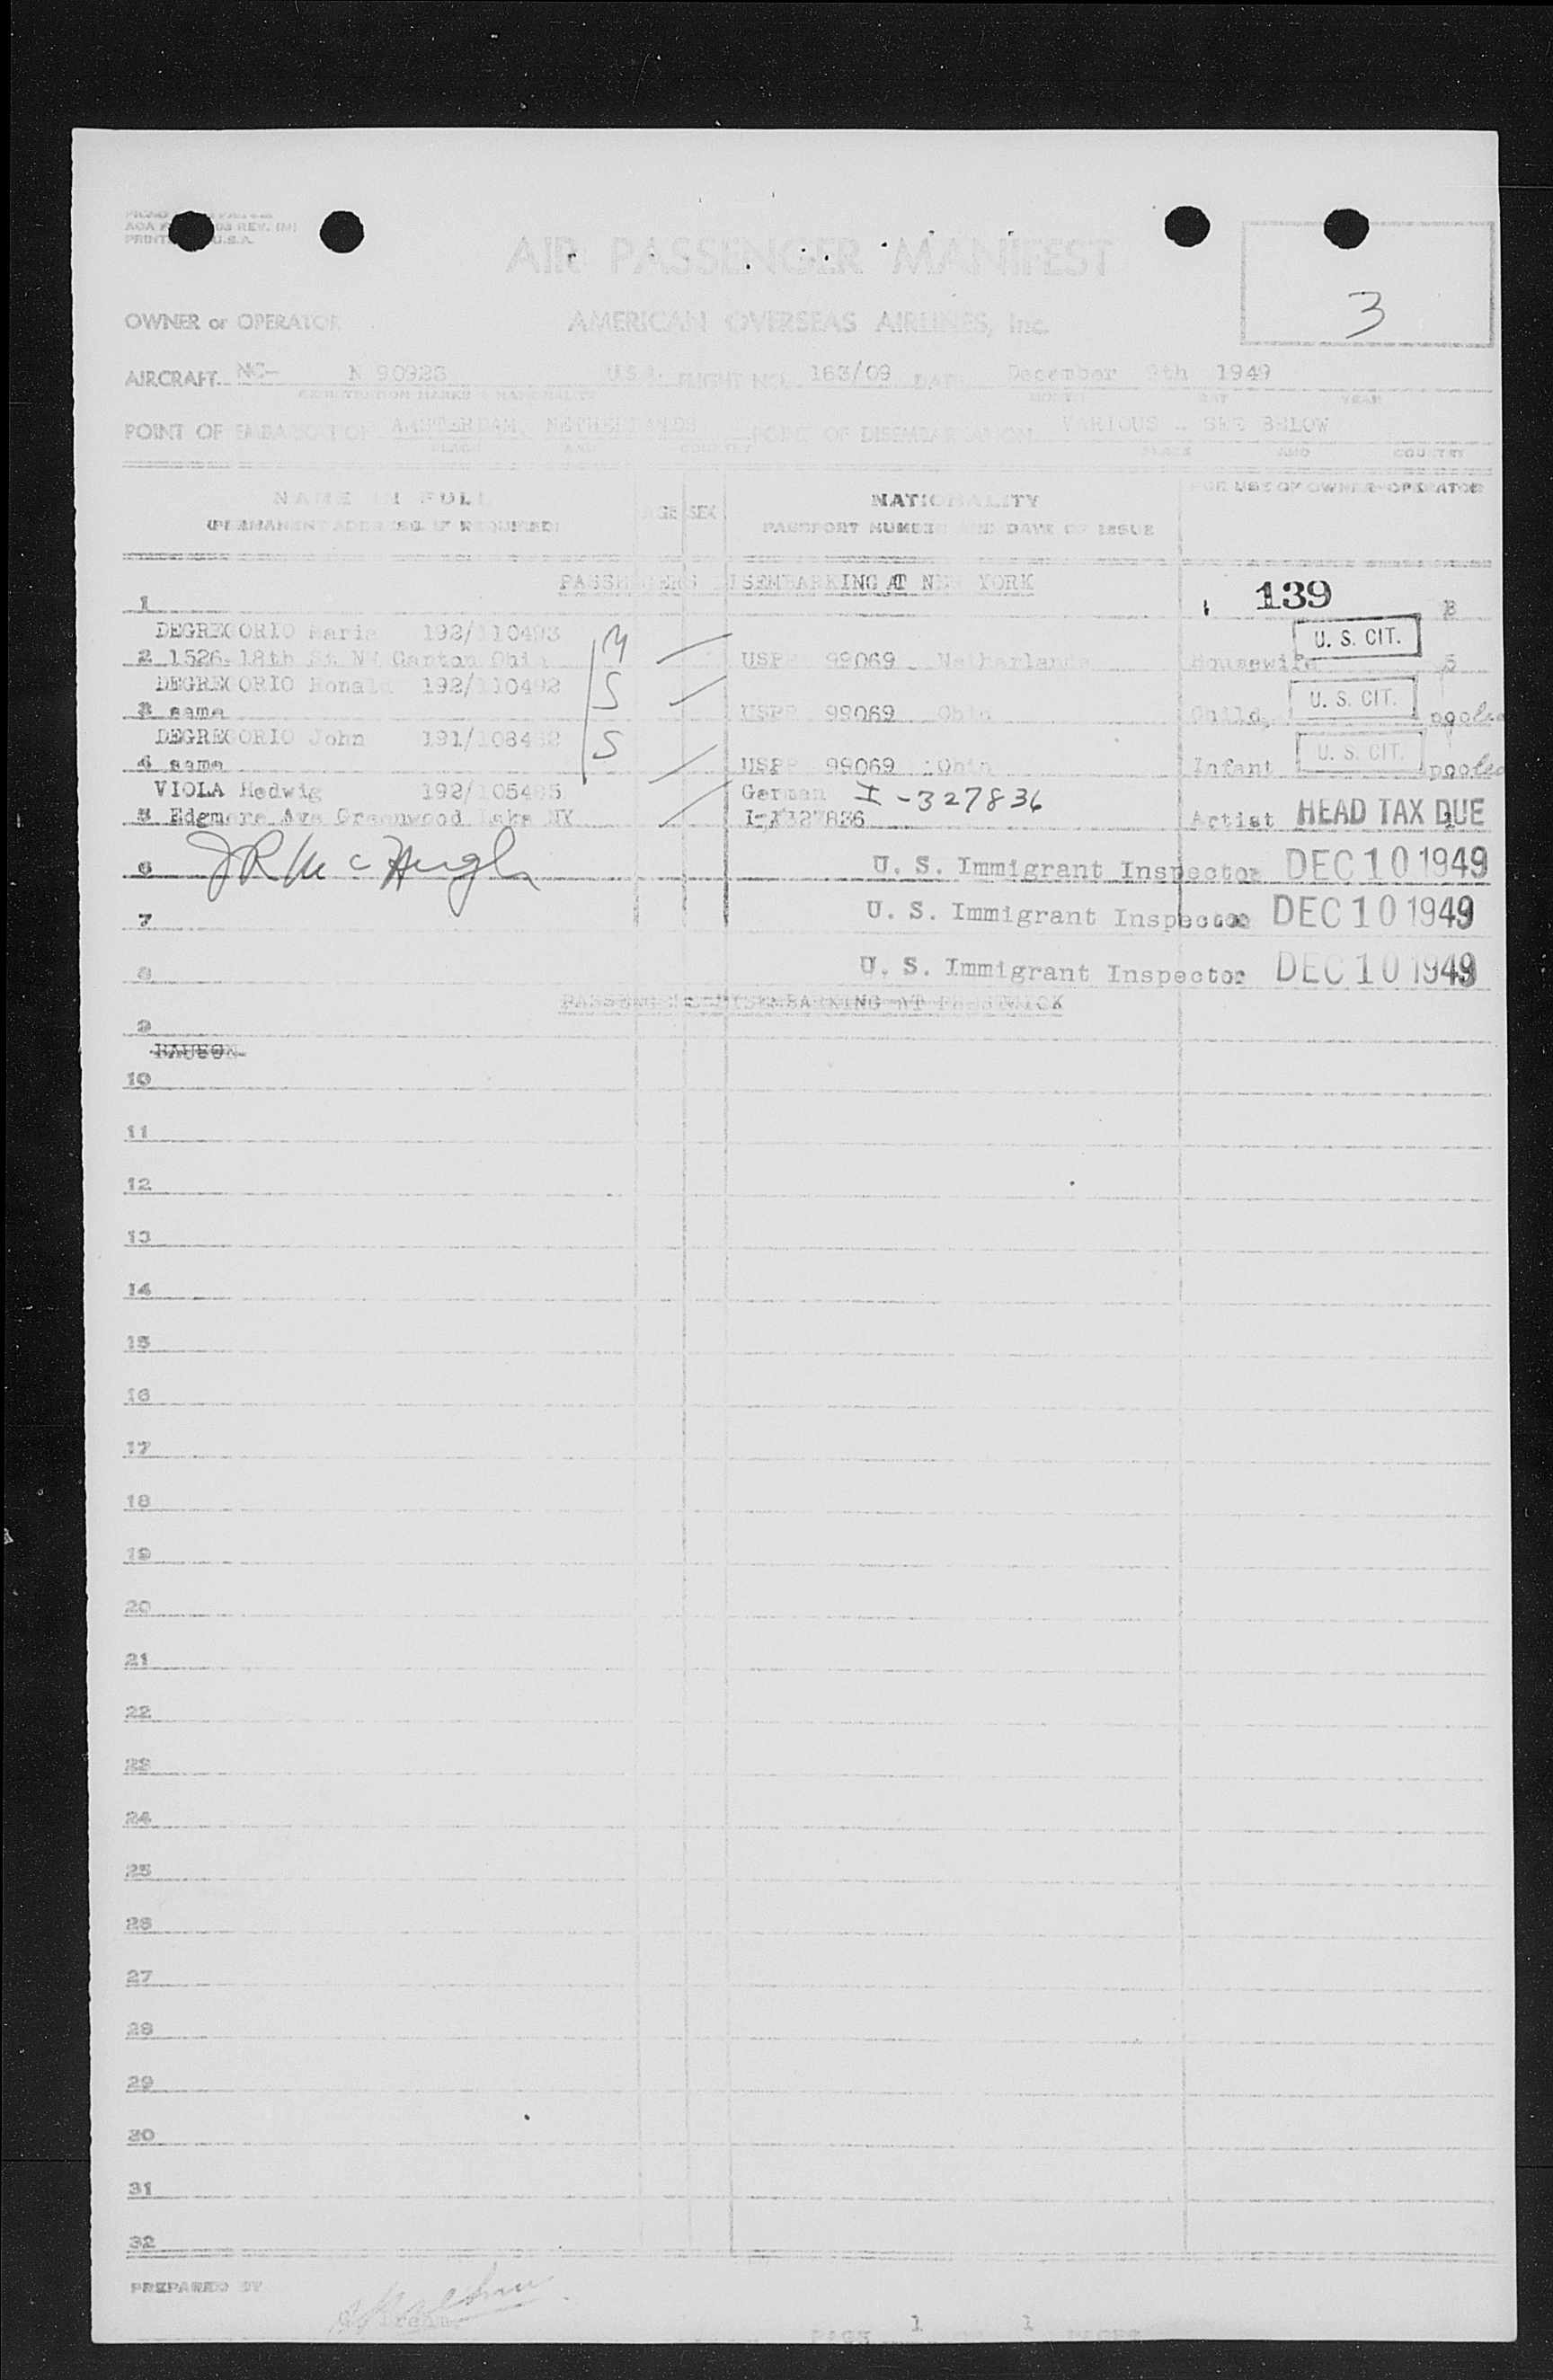 PRINTED U.S.A.
AIR PASSENGER MANIFEST
3
OWNER or OPERATOR AMERICAN OVERSEAS AIRLINES, Inc.
AIRCRAFT NC- N 90923 U.S.A. FLIGHT NO. 163/09 DATE December 9th 1949
REGISTRATION MARKS & NATIONALITY MONTH DAY YEAR
POINT OF EMBARKATION AMSTERDAM, NETHERLANDS POINT OF DISEMBARKATION VARIOUS - SEE BELOW
PLACE AND COUNTRY PLACE AND COUNTRY
NAME IN FULL AGE SEX NATIONALITY FOR USE OF OWNER-OPERATOR
(PERMANENT ADDRESS, IF REQUIRED) PASSPORT NUMBER AND DATE OF ISSUE
PASSENGERS DISEMBARKING AT NEW YORK
1 139 B
DEGREGORIO Maria 192/110493 M U. S. CIT.
2 1526-18th St. Canton Ohio USPP 99069 Netherlands Housewife 5
DEGREGORIO Ronald 192/110492 S U. S. CIT.
3 same USPP 99069 Ohio Child, pooled
DEGREGORIO John 191/ S U. S. CIT.
4 same USPP 99069 Ohio Infant pooled
VIOLA Hedwig 192/ German I-327836
5 Edgmere Ave Greenwood Lake NY Artist HEAD TAX DUE
6 J R McHugh U. S. Immigrant Inspector DEC 10 1949
7 U. S. Immigrant Inspector DEC 10 1949
8 U. S. Immigrant Inspector DEC 10 1949
PASSENGERS DISEMBARKING AT PRESTWICK
9
10
11
12
13
14
15
16
17
18
19
20
21
22
23
24
25
26
27
28
29
30
31
32
PREPARED BY
PAGE 1 OF 1 PAGES